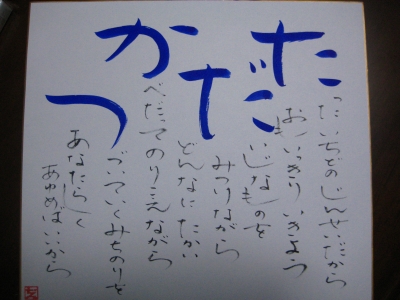 たった いちどの じんせいだから
おもいっきり いきよう
だいじなものを
みつけながら
どんなに たかい
かべだって のりこえながら
つづいていく みちのりを
あなたらしく
あゆめばいいから